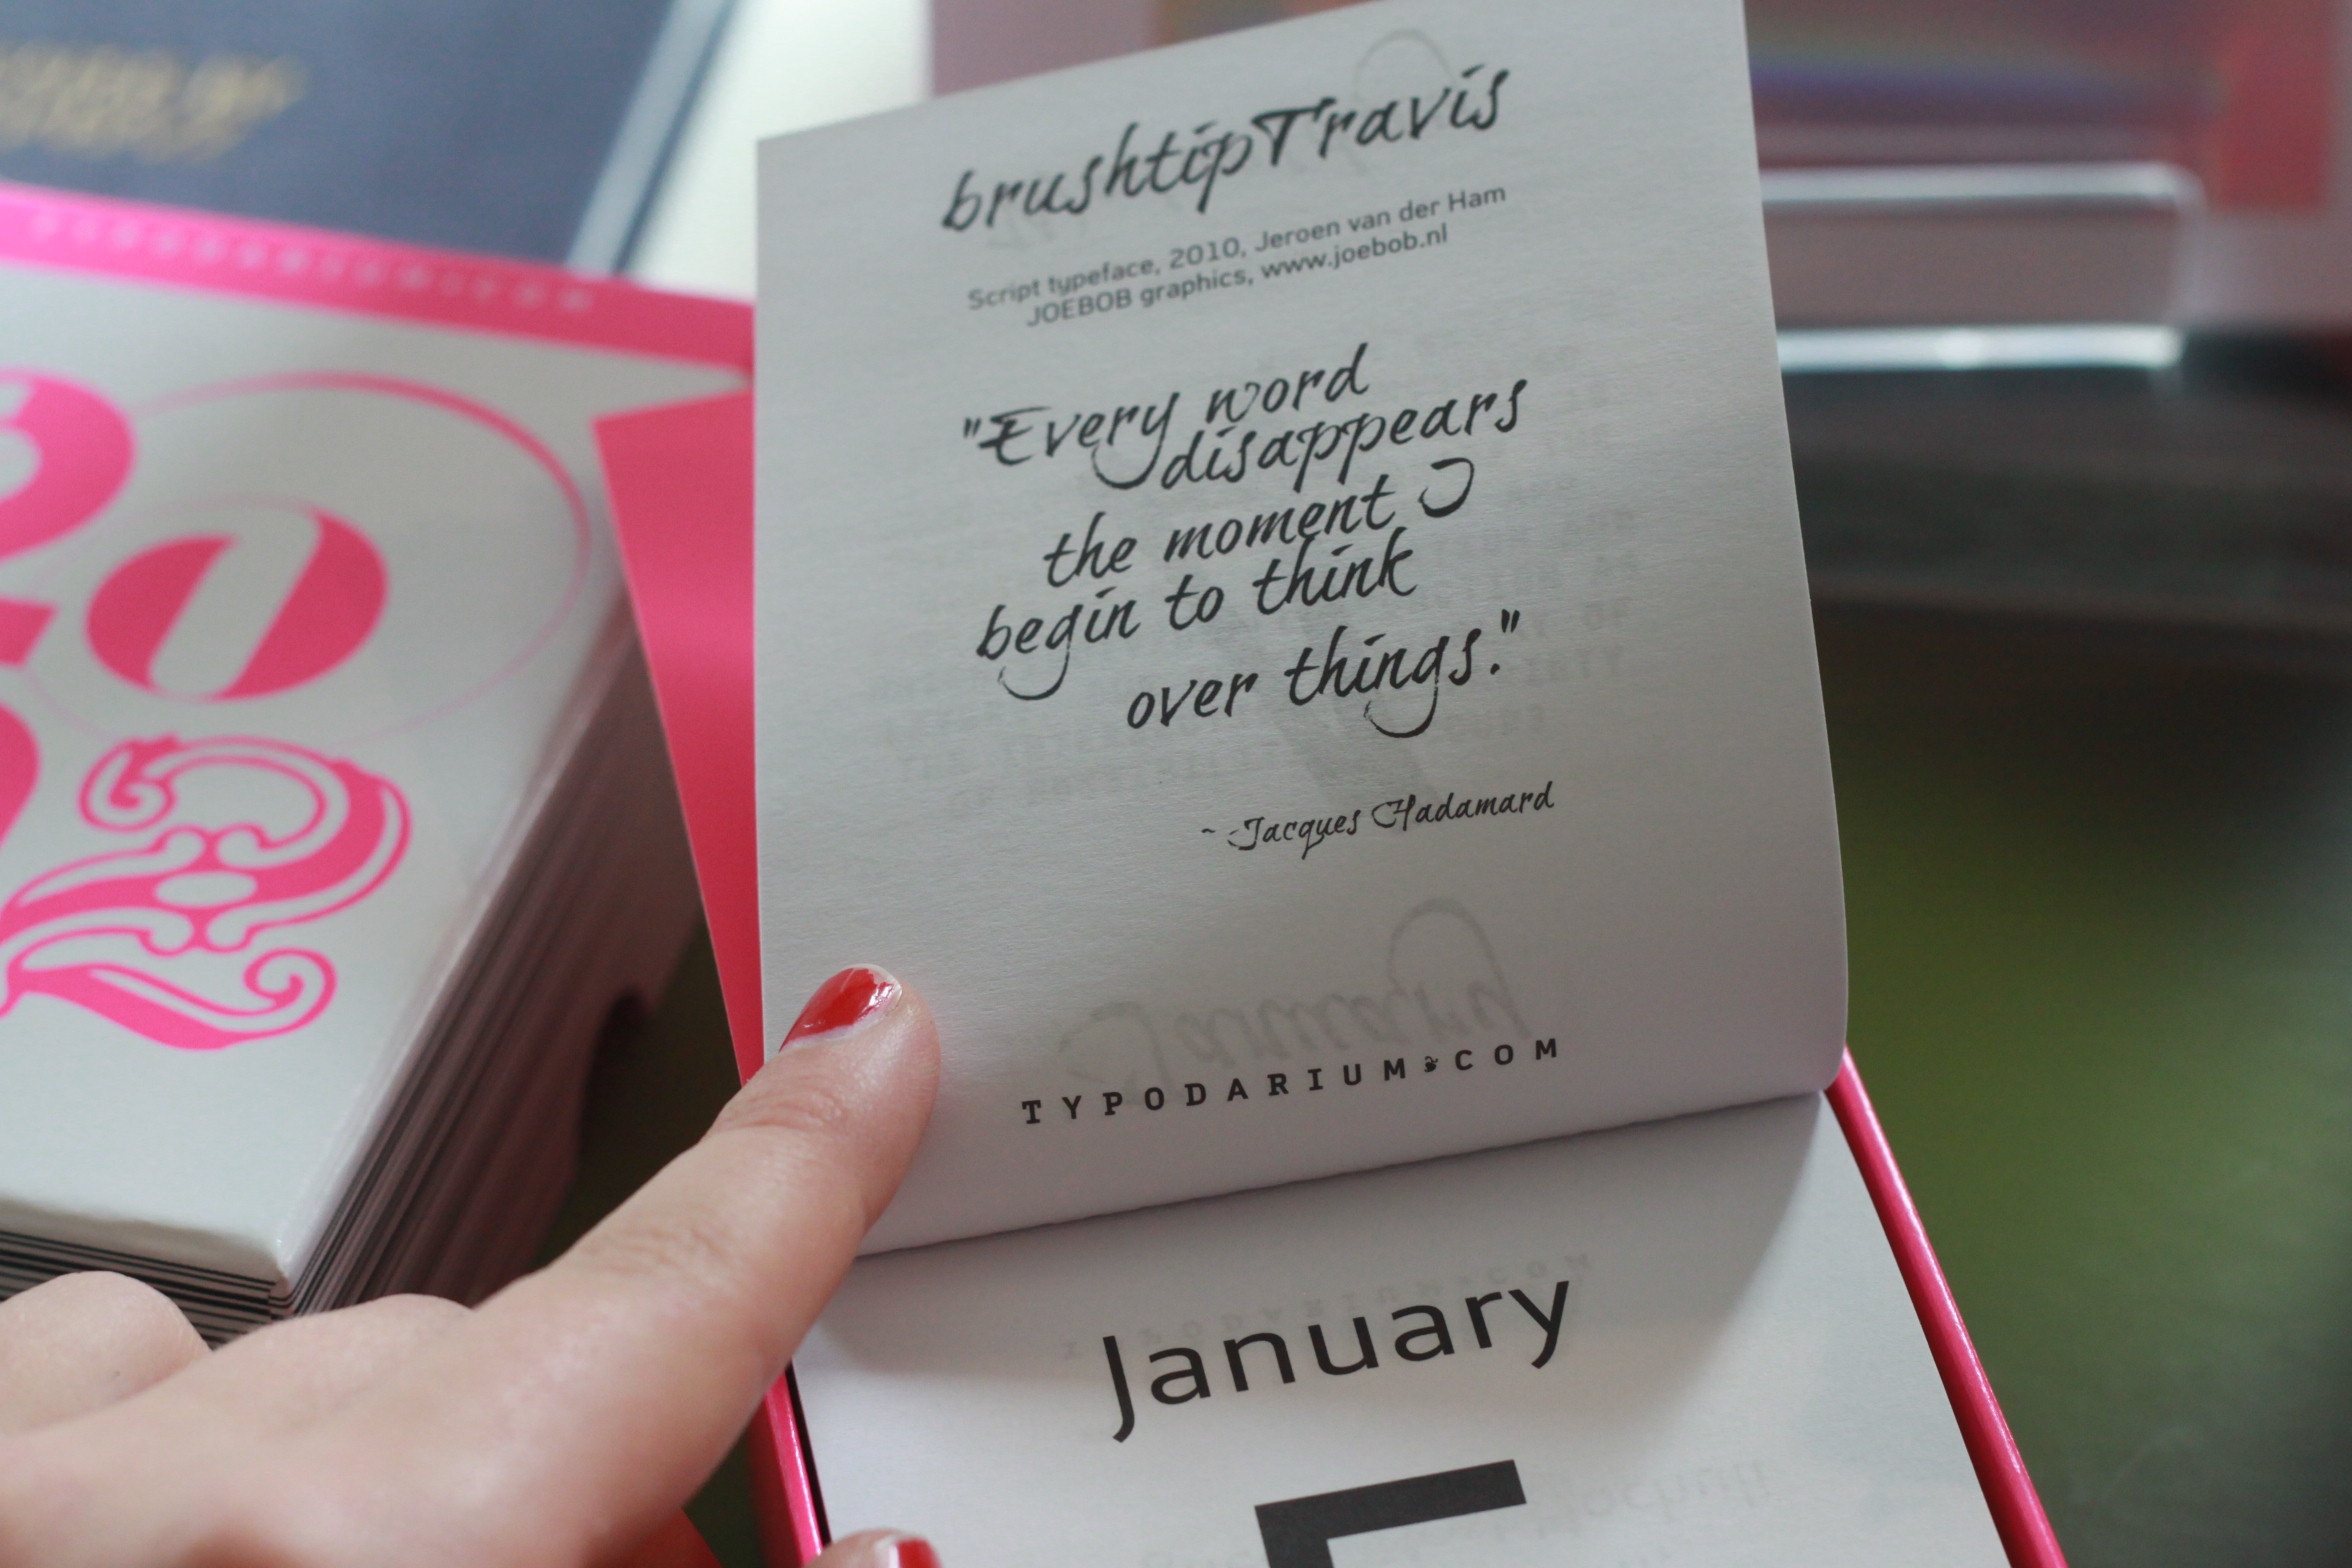 brushtipTravis
Script typeface, 2010, Jeroen van der Ham
JOEBOB graphics, www.joebob.nl
"Every word
disappears
the moment I
begin to think
over things."
~ Jacques Hadamard
TYPODARIUM❧COM
January
20
2